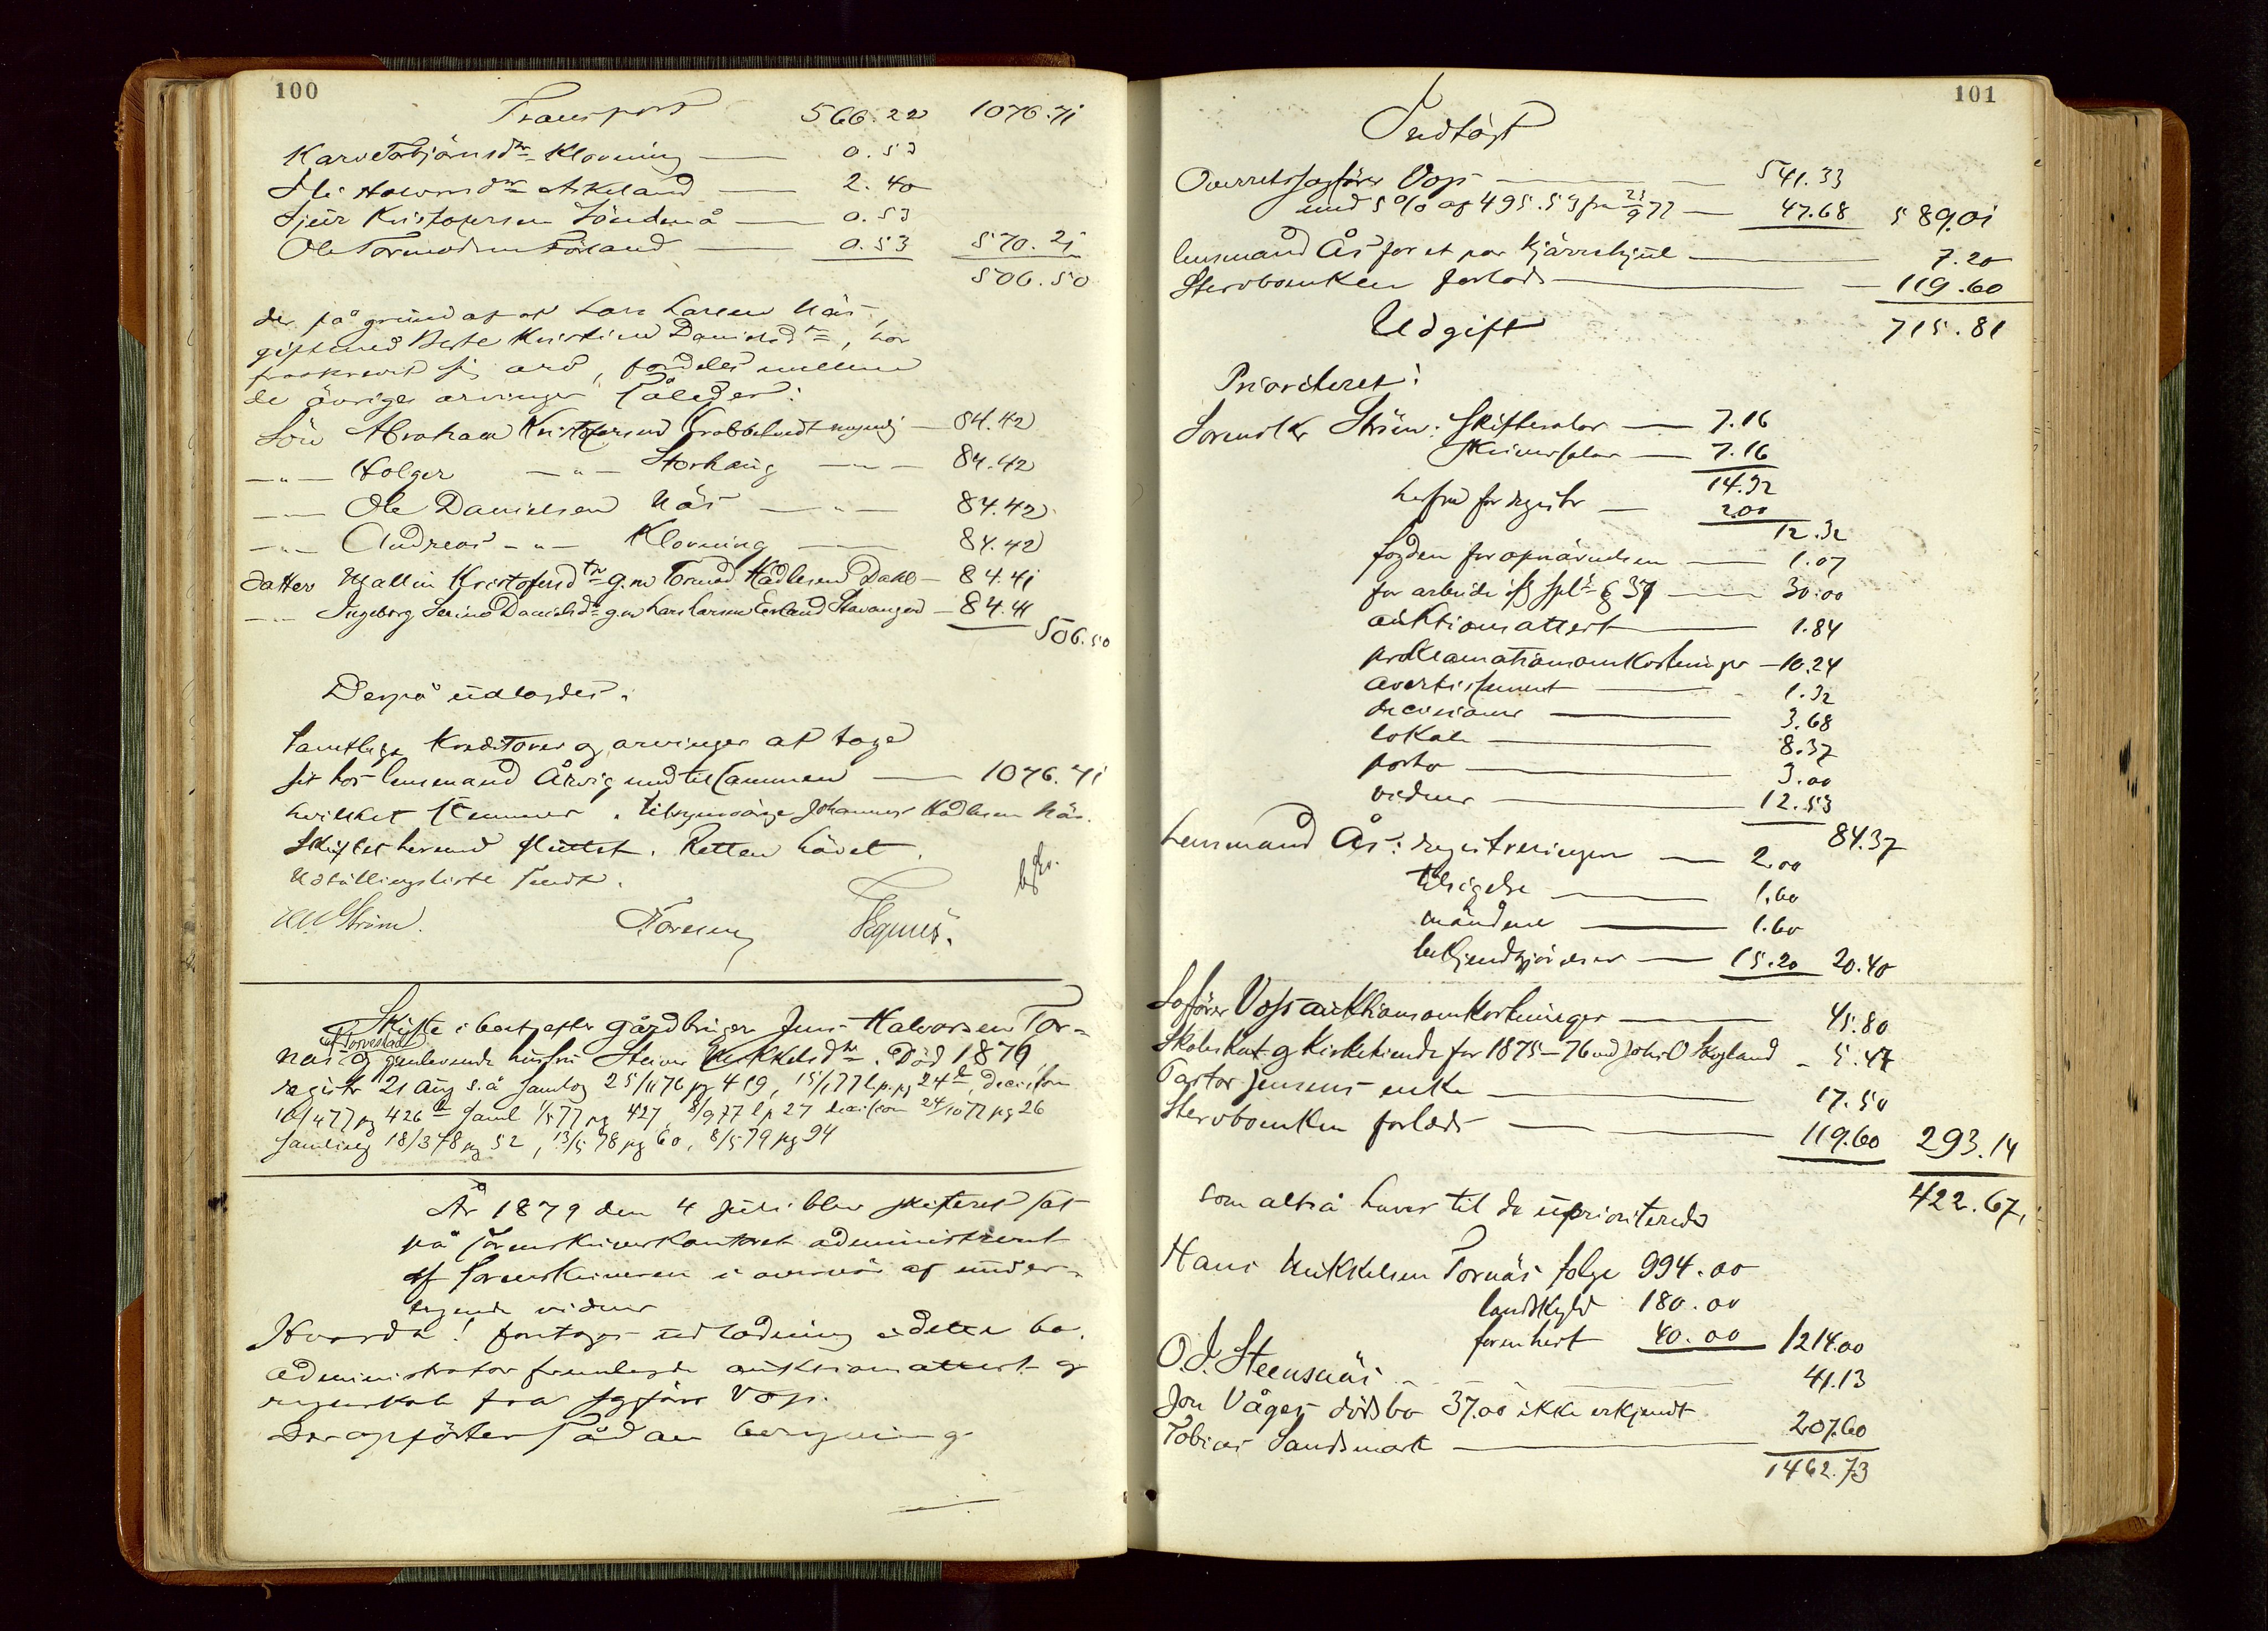 100
Transport 566.22 1076.71
Kari Torbjörnsdtr Klovning — 0.53
Eli Halvorsdtr Askeland — 2.40
Sjur Kristofersen Söndenå — 0.53
Ole Tormodsen Förland — 0.53 570.21
506.50
der på grund af at Lars Larsen Näs,
gift med Berte Kristine Danielsdtr, har
fraskrevet sig arv, fordeles mellem
de övrige arvinger således:
Sön Abraham Kristofersen Krabbetvedt myndig — 84.42
—„— Holger —„— Storhaug —„— 84.42
—„— Ole Danielsen Näs —„— 84.42
—„— Andreas —„— Klovning — 84.42
datter Mallin Kristofersdtr g.m. Tormod Hadlesen Dale — 84.41
—„— Ingeborg Serine Danielsdtr g.m. Lars Larsen Erland Stavanger — 84.41
506.50
Derpå udlagdes:
samtlige kreditorer og arvinger at tage
sit hos lensmand Årvig med tilsammen — 1076.71
hvilket stemmer. tilsynsvärge Johannes Hadlesen Näs.
Skiftet hermed sluttet. Retten hävet.
Udstillingsliste sendt.
Ström. Toresen Vegnes.
Skifte i boet efter gårdbruger Jens Halvorsen Tor-
näs af Torvestad og gjenlevende hustru Steinv Mikkelsdtr. Död 1876,
registr 21 Aug s.å. samling 25/11 76 pg 419, 15/1 77 l.p. pg 24, decision
10/4 77 pg 426 saml 1/5 77 pg 427, 8/9 77 lp 27 decision 24/10 77 pg 26
samling 18/3 78 pg 52, 13/5 78 pg 60, 8/5 79 pg 94
År 1879 den 4 Juli blev skifteret sat
på sorenskriverkontoret administreret
af sorenskriveren i overvär af under-
tegnede vidner
Hvorda! foretoges udlodning i dette bo.
Administrator fremlagde auktionsattest og
regnskab fra sagförer Vogt.
Der opförtes sådan beregning
101
Indtägt
Overretssagförer Vogt — 541.33
med 5 % af 495.59 fra 23/9 77 — 47.68 589.01
lensmand Ås for et par kjärrehjul — 7.20
Stervboenken forlods — 119.60
Udgift 715.81
Prioriteret:
Sorenskr Ström: skiftesalär — 7.16
skriversalär — 7.16
14.32
herfra for registr — 2.00
12.32
fogden for opnävnelsen — 1.07
for arbeide ifg spl § 37 — 30.00
auktionsattest — 1.84
proklamationsomkostninger — 10.24
avertissement — 1.32
decisioner — 3.68
lokale — 8.37
porto — 3.00
vidner — 12.53
84.37
Lensmand Ås: registreringen — 2.00
tilsigelse — 1.60
mändene — 1.60
bekjendtgjörelser — 15.20 20.40
Sagförer Vogt auktionsomkostninger — 45.80
Skoleskat og kirketiende for 1875–76 ved Johs O Skogland — 5.47
Pastor Jensens enke — 17.50
Stervboenken forlods — 119.60 293.14
422.67,
som altså haves til de uprioriterede
Hans Mikkelsen Tornäs fölge 994.00
landskyld 180.00
40.00 1214.00
O. J. Steensnäs — 41.13
Jon Våges dödsbo 37.00 ikke erkjendt
Tobias Sandsmark — 207.60
1462.73